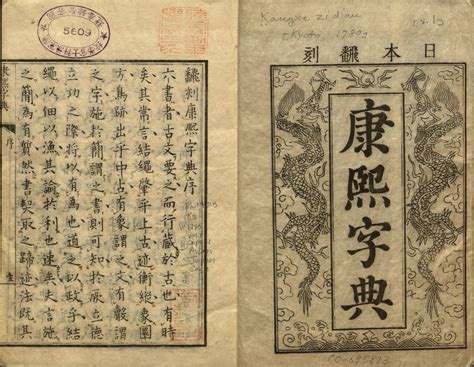 日本飜刻
康熙字典
Kangxi zidian
飜刻康熙字典序
六書者古文要之而行藏於古也有時
矣其常言結繩肇乎上古迹衡縱象圖
方鳥跡出乎中古有像謂之文有
之字施於簡謂之書則可知於厥立德
立功之際將以有為也道之以政乎結
繩以佃以漁其諭於利也速矣史言施
之簡為有然書契取之迹法既其
康熙字典
序
5609